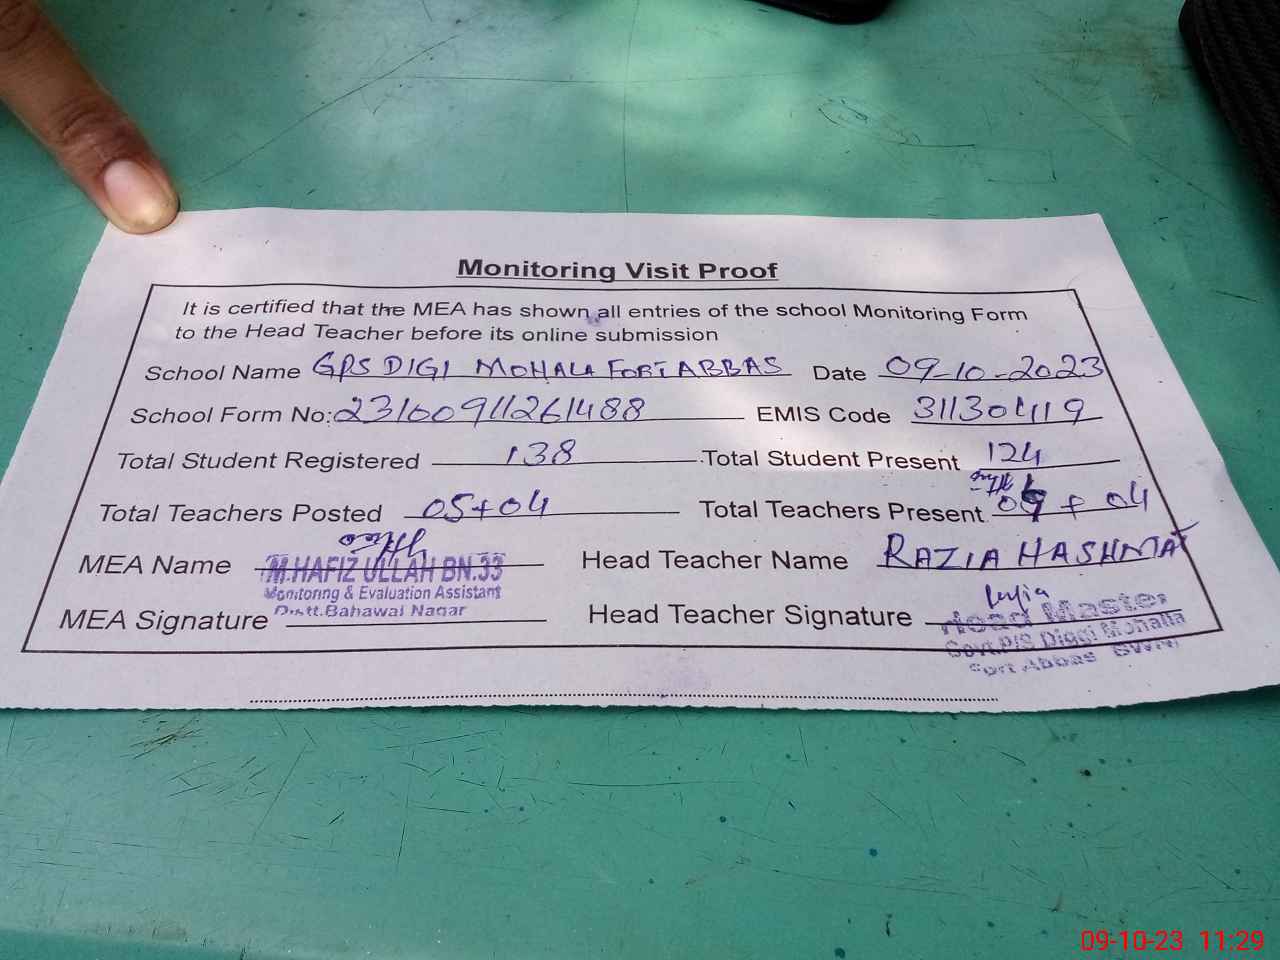 Monitoring Visit Proof
It is certified that the MEA has shown all entries of the school Monitoring Form
to the Head Teacher before its online submission
School Name GPS DIGI MOHALA FORT ABBAS Date 09-10-2023
School Form No: 23100911261488 EMIS Code 31130419
Total Student Registered 138 Total Student Present 124
Total Teachers Posted 05+04 Total Teachers Present + 04
MEA Name M.HAFIZ ULLAH BN.33 Head Teacher Name RAZIA HASHMAT
Monitoring & Evaluation Assistant
Distt.Bahawal Nagar
MEA Signature Head Teacher Signature
Head Master
Govt.P/S Diggi Mohalla
Fort Abbas BWN
09-10-23 11:29